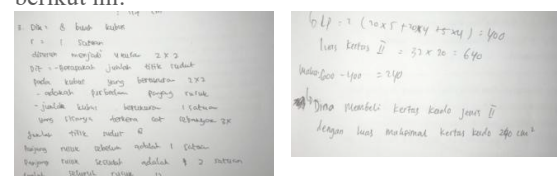 berikut ini:
8. Dik: 8 buah kubus
r = 1 satuan
disusun menjadi kubus 2 x 2
Dit: - Berapakah jumlah titik sudut
pada kubus yang berukuran 2x2
- adakah perbedaan panjang rusuk
- jumlah kubus berukuran 1 satuan
yang sisinya terkena cat sebanyak 2x
Jumlah titik sudut 8
Panjang rusuk sebelum adalah 1 satuan
Panjang rusuk sesudah adalah 2 satuan
Jumlah seluruh rusuk 12
b. Lp = 2 (20x5 + 20x4 + 5x4) = 400
luas kertas II = 32 x 20 = 640
640 - 400 = 240
Dina membeli kertas kado jenis II
dengan luas maksimal kertas kado 240 cm²